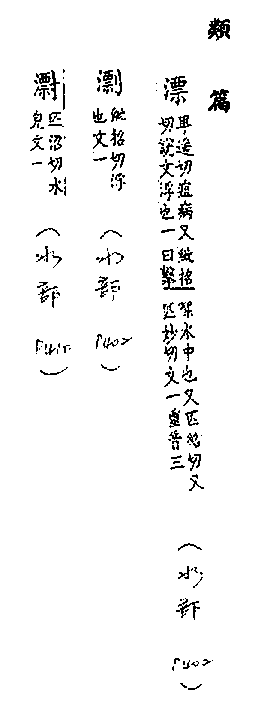 類篇
漂 卑遙切疽病又紕招
切說文浮也一曰擊
絮水中也又匹沼切又
匹妙切文一重音三
（水部 P402）
㵱 紕招切浮
也文一
（水部 P402）
匹沼切水
皃文一
（水部